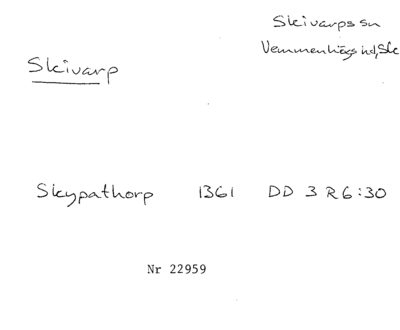 Skivarps sn
Vemmenhögs hd, Sk
Skivarp
Skypathorp 1361 DD 3 R 6:30
Nr 22959